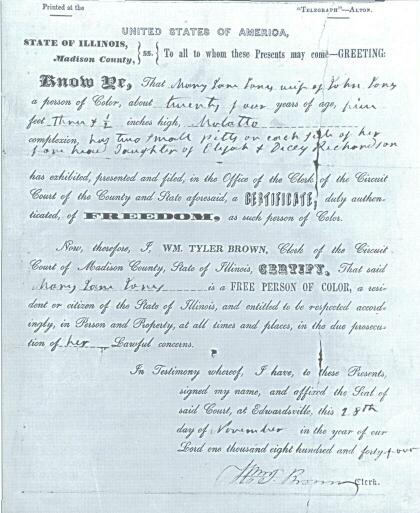 Printed at the "TELEGRAPH"—ALTON.
UNITED STATES OF AMERICA,
STATE OF ILLINOIS,
Madison County, } ss. } To all to whom these Presents may come—GREETING:
Know Ye, That Mary Jane Jones wife of John Jones
a person of Color, about twenty four years of age, five
feet Three & ½ inches high, Molatto
complexion, has two small pitts on each side of her
fore head Daughter of Elijah & Diccy Richardson
has exhibited, presented and filed, in the Office of the Clerk of the Circuit
Court of the County and State aforesaid, a CERTIFICATE, duly authen-
ticated, of FREEDOM, as such person of Color.
Now, therefore, I, WM. TYLER BROWN, Clerk of the Circuit
Court of Madison County, State of Illinois, CERTIFY, That said
Mary Jane Jones is a FREE PERSON OF COLOR, a resi-
dent or citizen of the State of Illinois, and entitled to be respected accord-
ingly, in Person and Property, at all times and places, in the due prosecu-
tion of her Lawful concerns.
In Testimony whereof, I have, to these Presents,
signed my name, and affixed the Seal of
said Court, at Edwardsville, this 28th
day of November in the year of our
Lord one thousand eight hundred and forty four
Wm. T. Brown Clerk.